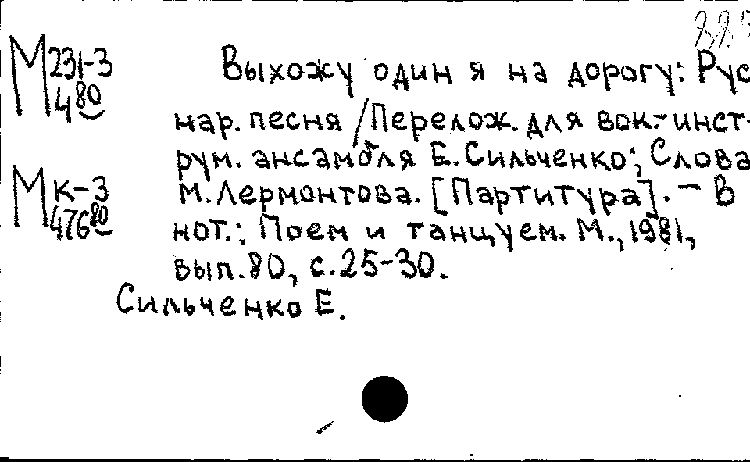 М 231-3
4 80
Выхожу один я на дорогу: Рус
нар. песня / Перелож. для вок.-инст-
рум. ансамбля Е. Сильченко; Слова
М. Лермонтова. [Партитура]. — В
нот.: Поем и танцуем. М., 1981,
вып. 80, с. 25-30.
М К-3
476 80
Сильченко Е.